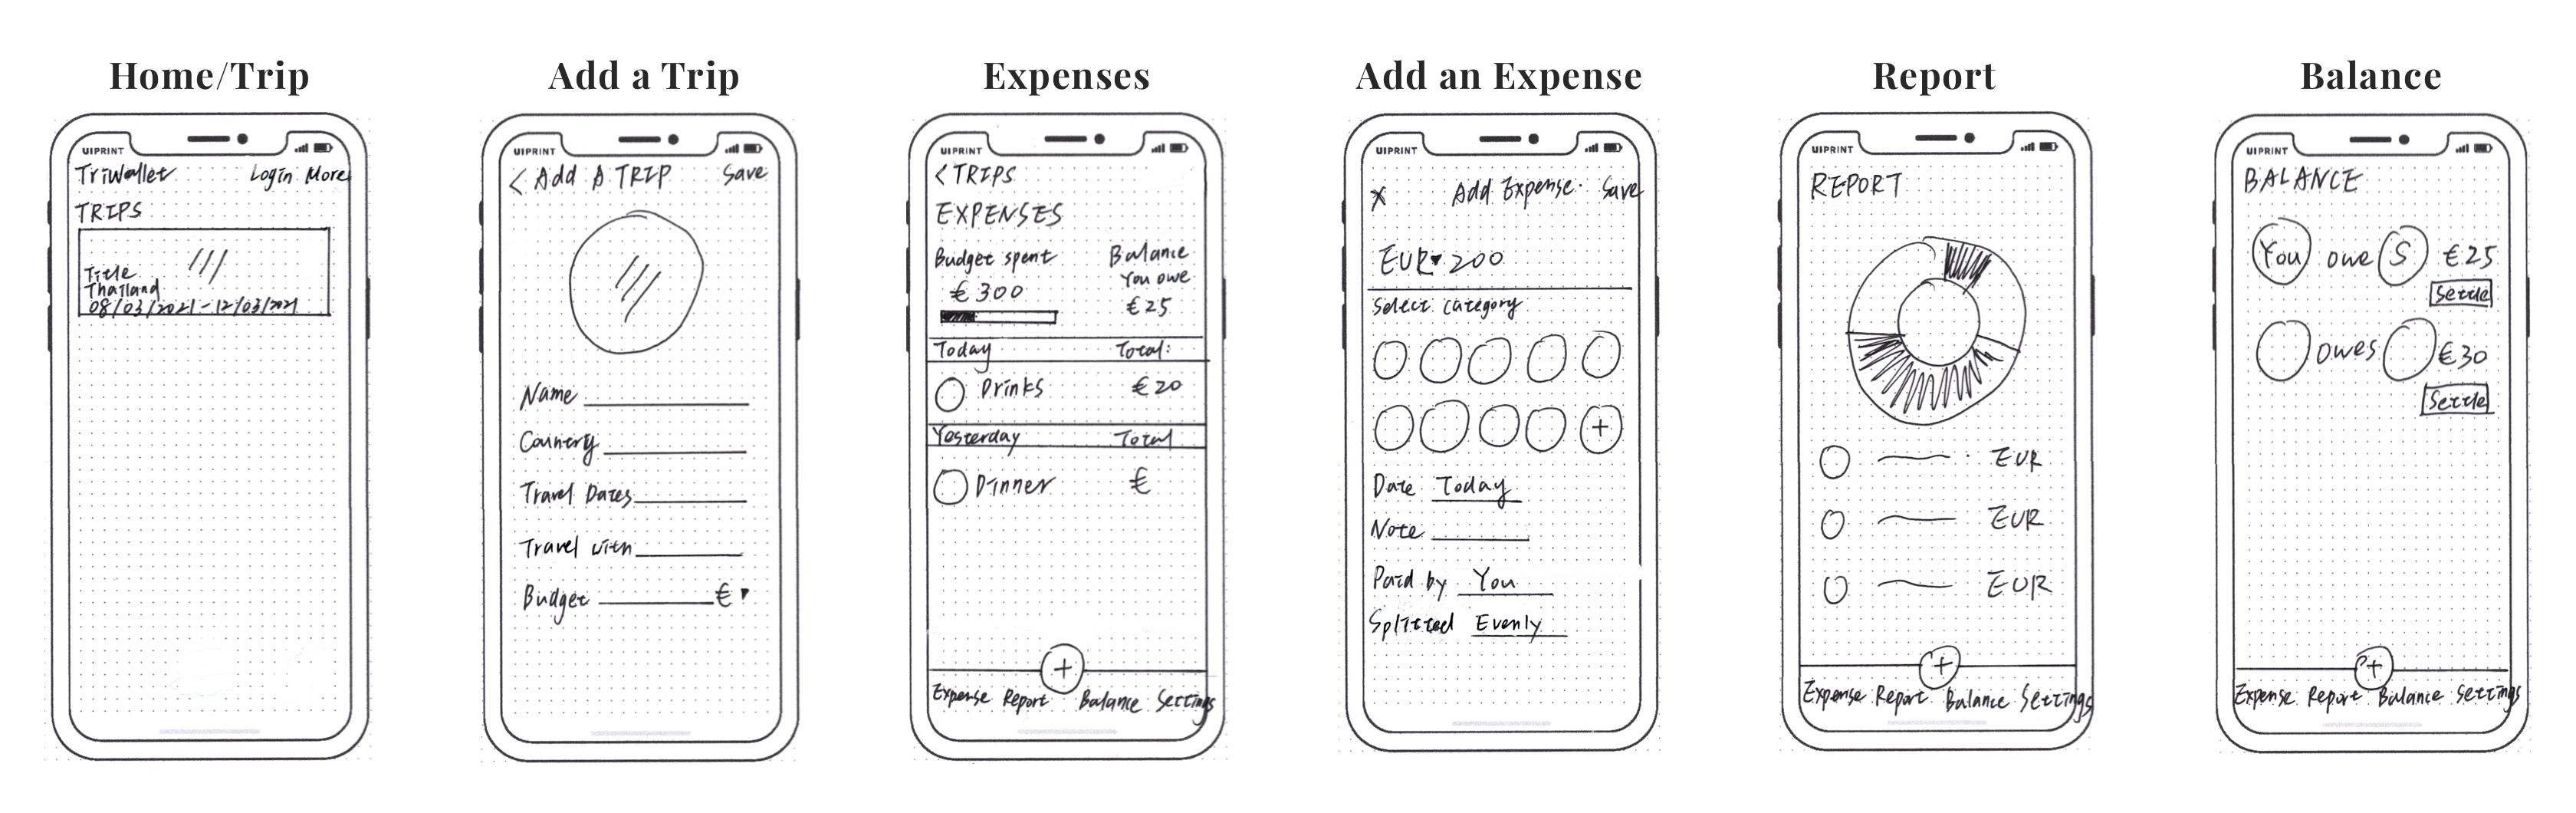 Home/Trip
UIPRINT
TriWallet Login More
TRIPS
Title
Thailand
08/03/2021 - 12/03/2021
Add a Trip
UIPRINT
< Add A TRIP Save
Name
Country
Travel Dates
Travel with
Budget €
Expenses
UIPRINT
< TRIPS
EXPENSES
Budget spent Balance
You owe
€300
€25
Today Total:
Drinks €20
Yesterday Total
Dinner €
+
Expense Report Balance Settings
Add an Expense
UIPRINT
X Add Expense. Save
EUR 200
Select Category
+
Date Today
Note
Paid by You
Splitted Evenly
Report
UIPRINT
REPORT
EUR
EUR
EUR
+
Expense Report Balance Settings
Balance
UIPRINT
BALANCE
You owe S €25
Settle
owes €30
Settle
+
Expense Report Balance Settings